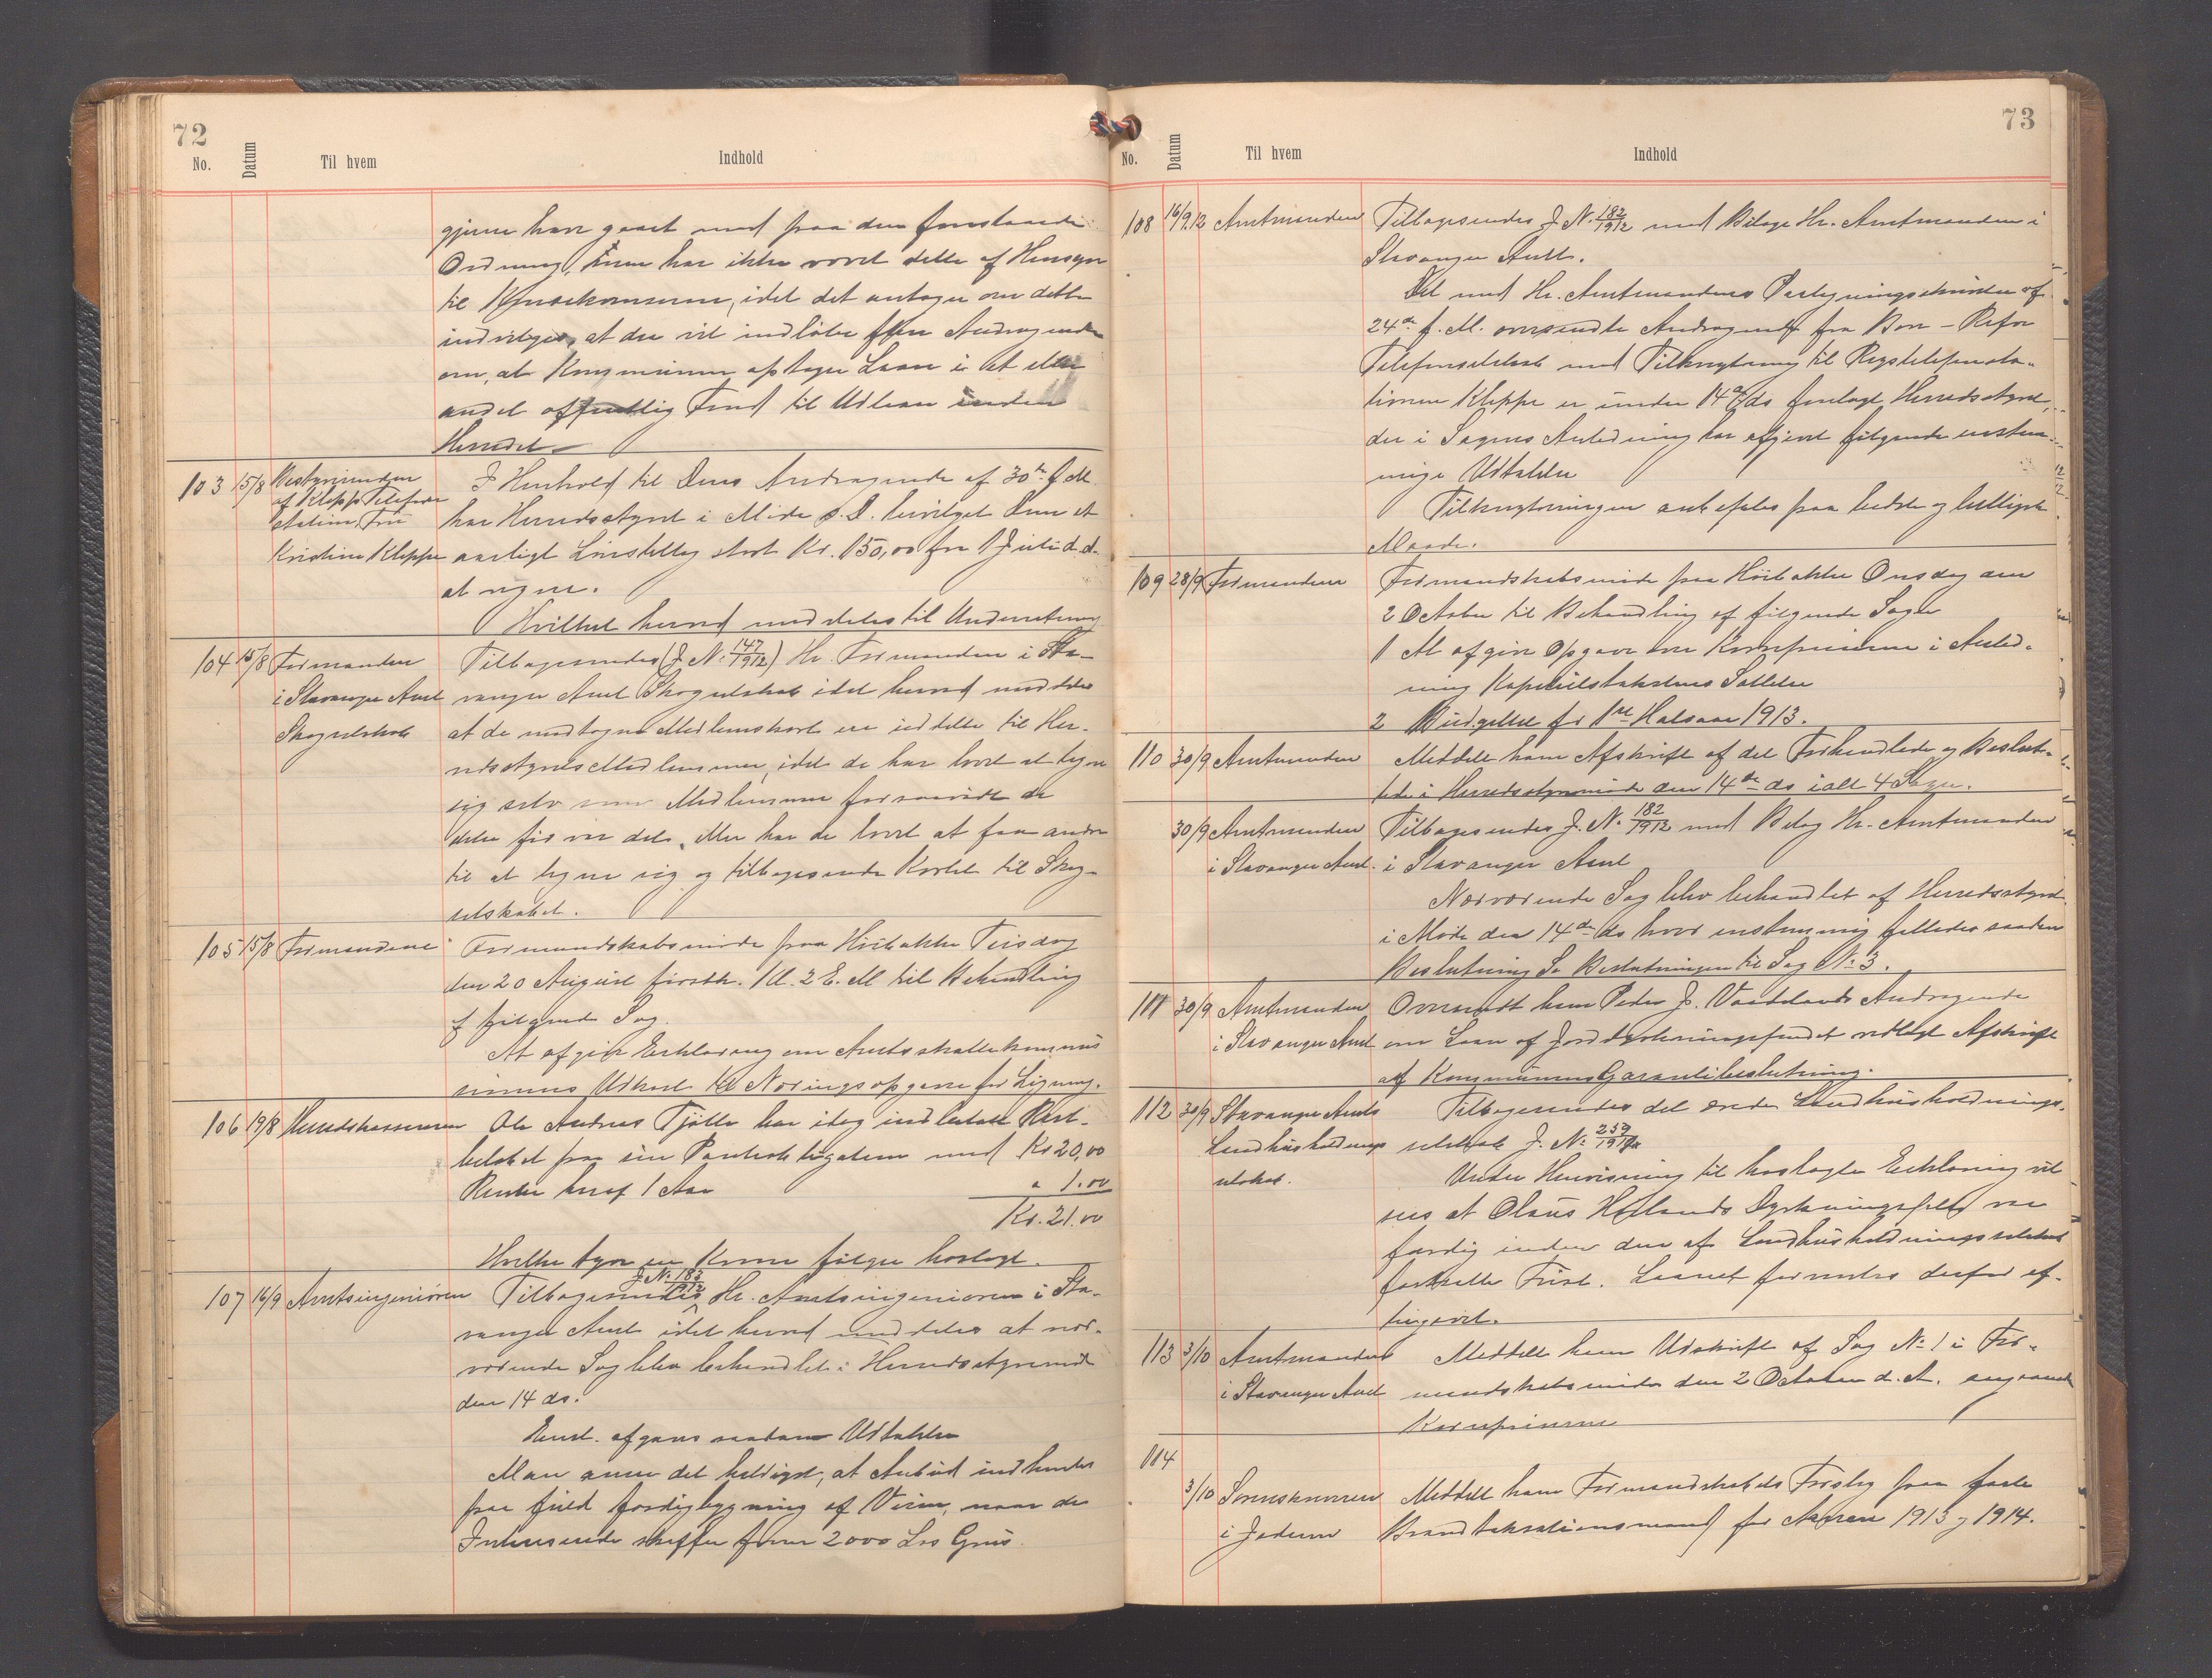 72
No. Datum Til hvem Indhold
gjerne have gaaet med paa den foreslaaede
Ordning, men har ikke vovet dette af Hensyn
til Konsekvenserne, idet det antages om dette
indvilges, at der vil indløbe flere Andragender
om, at Kommunen optager Laan i et eller
andet offentlig Fond til Udlaan inden
Herredet
103 15/8 Bestyrerinden I Henhold til Deres Andragende af 30te f. M.
af Klepp Telefon
station, Fru har Herredsstyret i Møde s. D. bevilget Dem et
Kristine Kleppe aarligt Lønstillæg stort Kr. 150,00 fra 1 Juli d. A.
at regne.
Hvilket herved meddeles til Underretning
104 15/8 Formanden Tilbagesendes (J. No. 147/1912) Hr. Formanden i Sta-
i Stavanger Amt vanger Amt Skogselskab idet herved meddeles
Skogselskab at de modtagne Medlemskort er uddelte til Her-
redsstyrets Medlemmer, idet de har lovet at tegne
sig selv som Medlemmer forsaavidt de
ikke før var det. Eller har de lovet at faa andre
til at tegne sig og tilbagesende Kortet til Skog-
selskabet.
105 15/8 Formændene Formandskabsmøde paa Høibakke Tirsdag
den 20 August førstk. Kl. 2 E. M til Behandling
af følgende Sag.
At afgive Erklæring om Amtsskattekommis
sionens Udkast til Næringsopgave for Ligning.
106 19/8 Herredskassereren Ole Andreas Tjøtta har idag indbetalt Rest-
beløbet paa sin Panteobligation med Kr 20,00
Renter heraf 1 Aar " 1.00
Kr. 21.00
Hvilke tyve en Krone følger hoslagt.
107 16/9 Amtsingeniøren Tilbagesendes J. No. 183/1912 Hr. Amtsingeniøren i Sta-
vanger Amt idet herved meddeles at nær-
værende Sag blev behandlet i Herredsstyremøde
den 14 ds.
Enst. afgaves saadan Udtalelse
Man anser det heldigst, at Anbud indhentes
paa fuld færdigbygning af Veien, naar de
Interesserede skaffer frem 2000 Læs Grus.
73
No. Datum Til hvem Indhold
108 16/9.12 Amtmanden Tilbagesendes J. No. 182/1912 med Bilage Hr. Amtmanden i
Stavanger Amt.
Det med Hr. Amtmandens Paategningsskrivelse af
24de f. M. oversendte Andragende fra Bore - Refve
Telefonselskab med Tilknytning til Rigstelefonsta-
tionen Kleppe er under 14de ds forelagt Herredsstyret,
der i Sagens Anledning har afgivet følgende enstem-
mige Udtalelse
Tilknytningen anbefales paa bedste og billigste
Maade.
109 28/9 Formændene Formandskabsmøde paa Høibakke Onsdag den
2 October til Behandling af følgende Sager
1 At afgive Opgave over Kornpriserne i Anled-
ning Kapitelstakstens Sættelse
2 Budgettet for 1ste Halvaar 1913.
110 30/9 Amtmanden Meddelt ham Afskrift af det Forhandlede og Beslut-
tede i Herredsstyremøde den 14de ds ialt 4 Sager.
30/9 Amtmanden Tilbagesendes J. No. 182/1912 med Bilag Hr. Amtmanden
i Stavanger Amt. i Stavanger Amt
Nærværende Sag blev behandlet af Herredsstyret
i Møde den 14de ds hvor enstemmig fattedes saadan
Beslutning Se Beslutningen til Sag No. 3.
111 30/9 Amtmanden Oversendt ham Peder J. Vaadelands Andragende
i Stavanger Amt om Laan af Jorddyrkningsfondet vedlagt Afskrift
af Kommunens Garantibeslutning.
112 30/9 Stavanger Amts Tilbagesendes det ærede Landhusholdnings-
Landhusholdnings selskab J. No. 259/1912
selskab. Under Henvisning til hoslagte Erklæring vil
sees at Olaus Høilands Dyrkningsfelt var
færdig inden den af Landhusholdningsselskabet
fastsatte Frist. Laanet formentes derfor af-
tingsvist.
113 3/10 Amtmanden Meddelt ham Udskrift af Sag No. 1 i For-
i Stavanger Amt mandskabsmøde den 2 October d. A. angaaende
Kornpriserne
114
3/10 Sorenskriveren Meddelt ham Formandskabets Forslag paa faste
i Jæderen Brandtakstationsmænd for Aarene 1913 og 1914.